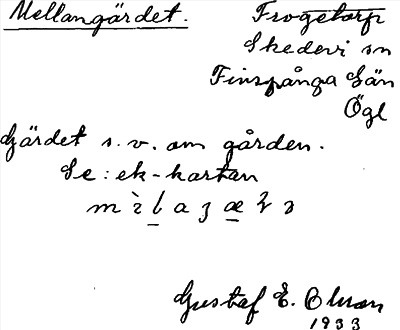 Mellangärdet. Frogetorp
Skedevi sn
Finspånga län
Ögl
Gärdet s.v. om gården.
Se: ek-kartan
Gustaf E. Olson
1933